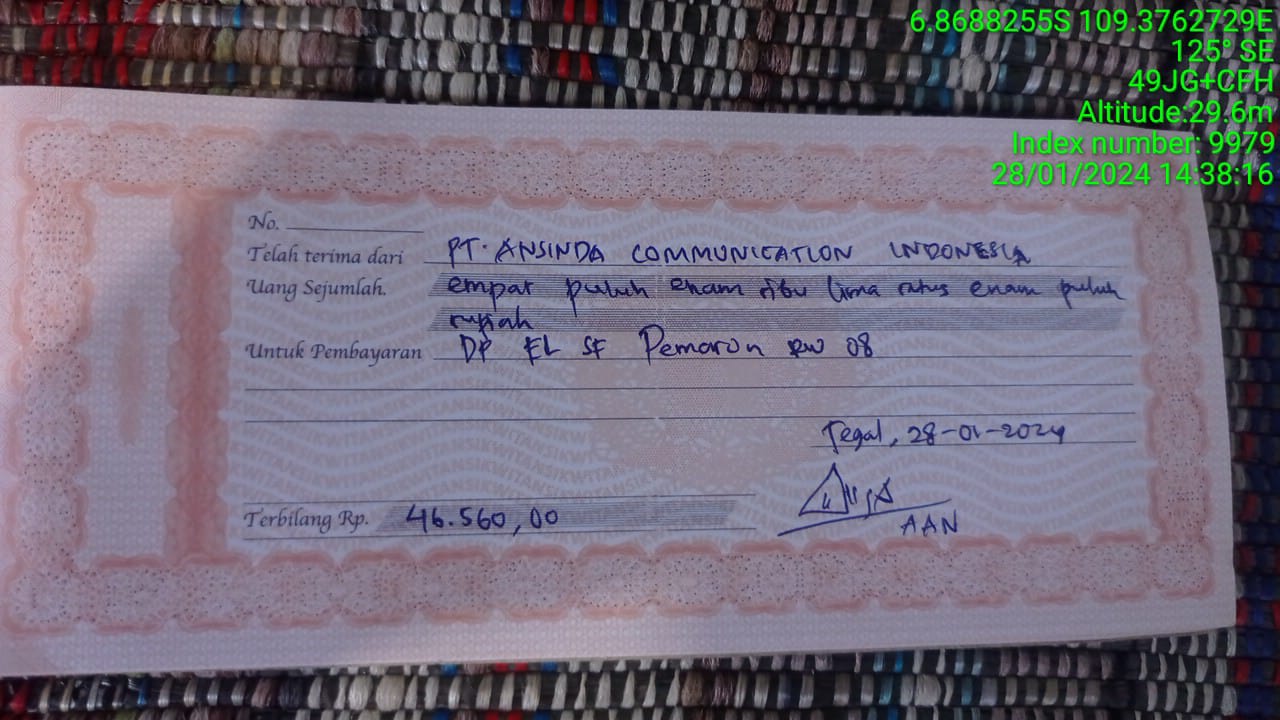 6.8688255S 109.3762729E
125° SE
49JG+CFH
Altitude:29.6m
Index number: 9979
28/01/2024 14:38:16
No.
Telah terima dari PT. ANSINDA COMMUNICATION INDONESIA
Uang Sejumlah. empat puluh enam ribu lima ratus enam puluh
rupiah
Untuk Pembayaran DP EL SF Pemaron RW 08
Tegal, 28-01-2024
Terbilang Rp. 46.560,00
AAN